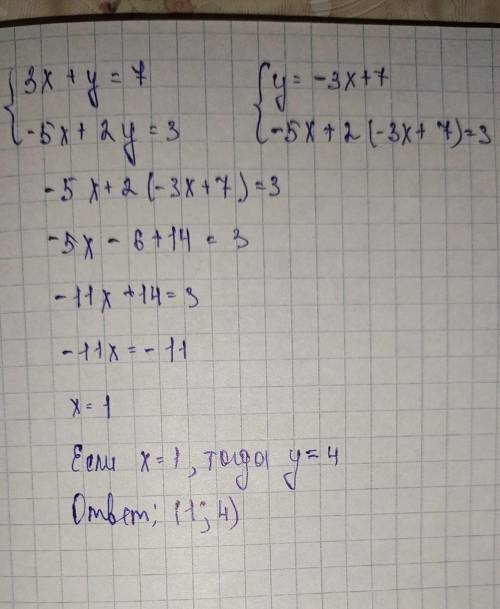 {3x + y = 7 {y = -3x+7
-5x + 2y = 3 -5x + 2(-3x + 7) = 3
-5x + 2(-3x+7) = 3
-5x - 6 + 14 = 3
-11x + 14 = 3
-11x = -11
x = 1
Если x = 1, тогда y = 4
Ответ: (1; 4)